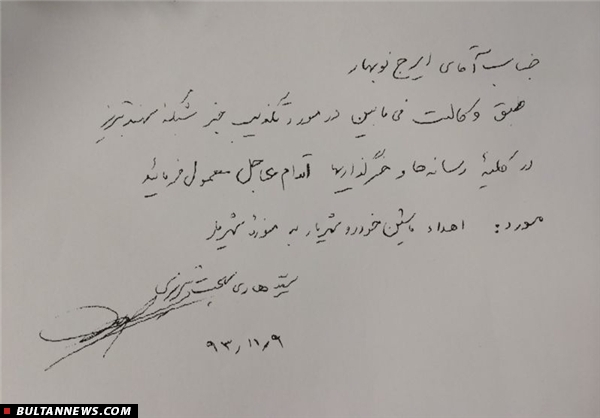 جناب آقای ایرج نوبهار
طبق وکالت فی مابین در مورد تکذیب خبر شبکه سهند تبریز
در کلیهٔ رسانه ها و خبرگذاریها اقدام عاجل معمول فرمائید
مورد: اهداء ماشین خودرو شهریار به موزه شهریار
سید هادی بهجت تبریزی
۹۳/۱۱/۹
BULTANNEWS.COM